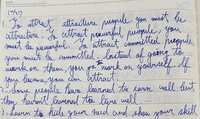 To attract attractive people you must be
attractive. To attract powerful people, you
must be powerful. To attract committed people
you must be committed. Instead of going to
work on them, you go work on yourself. If
you become you can attract.
Some people have learned to earn well but
they haven't learned to live well
Learn to hide your need and show your skill